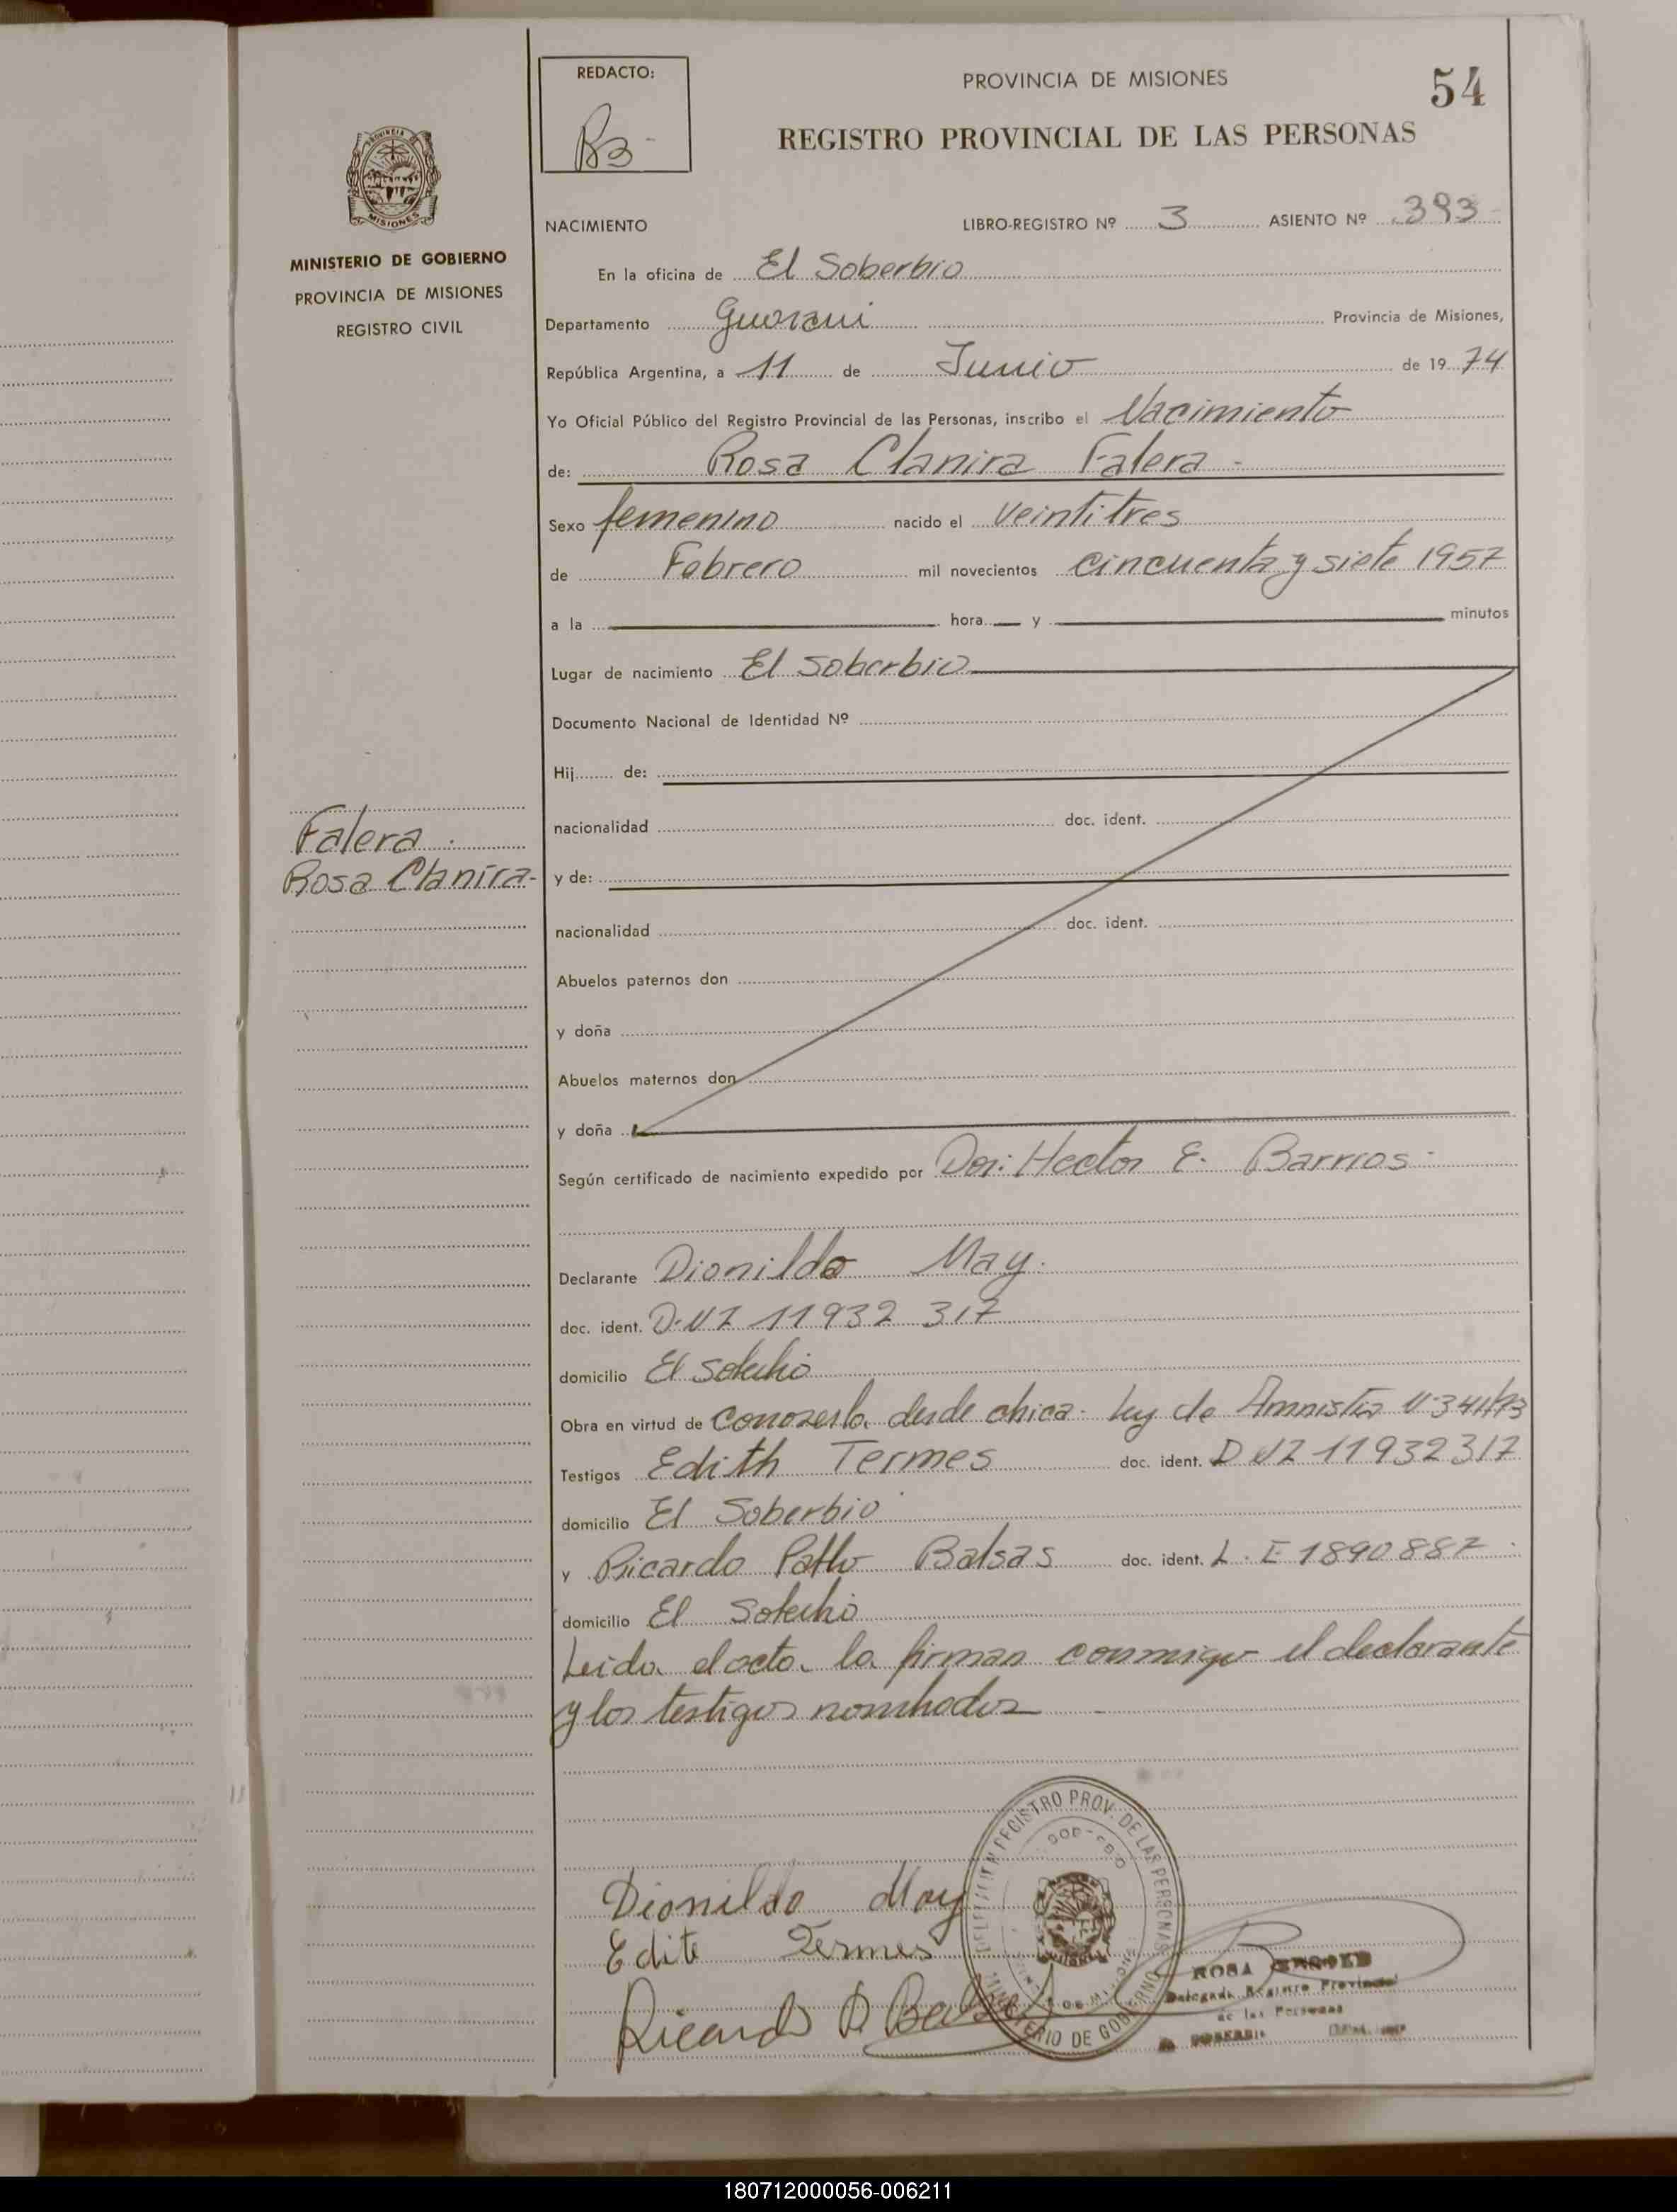 REDACTO:
PROVINCIA DE MISIONES
54
REGISTRO PROVINCIAL DE LAS PERSONAS
MISIONES
MINISTERIO DE GOBIERNO
PROVINCIA DE MISIONES
REGISTRO CIVIL
NACIMIENTO LIBRO-REGISTRO Nº 3 ASIENTO Nº 393
En la oficina de El Soberbio
Departamento Guarani Provincia de Misiones,
República Argentina, a 11 de Junio de 1974
Yo Oficial Público del Registro Provincial de las Personas, inscribo el Nacimiento
de: Rosa Clanira Falera -
Sexo femenino nacido el veintitres
de Febrero mil novecientos cincuenta y siete 1957
a la hora y minutos
Lugar de nacimiento El Soberbio
Documento Nacional de Identidad Nº
Hij de:
nacionalidad doc. ident.
Falera
Rosa Clanira-
y de:
nacionalidad doc. ident.
Abuelos paternos don
y doña
Abuelos maternos don
y doña
Según certificado de nacimiento expedido por Hector E. Barrios
Declarante Dionildo May.
doc. ident. 11932 317
domicilio El Soberbio
Obra en virtud de conoserla desde chica. Ley de Amnistia
Testigos Edith Termes doc. ident. 11932317
domicilio El Soberbio
y Ricardo Pablo Balsas doc. ident. L.E 1890887
domicilio El Soberbio
Leida el acta la firman conmigo el declarante
y los testigos nombrados
Dionildo May
Edite Termes
Ricardo P. Balsas
REGISTRO PROV. DE LAS PERSONAS
MINISTERIO DE GOBIERNO
ROSA
Delegada Registro Provincial
de las Personas
EL SOBERBIO
180712000056-006211